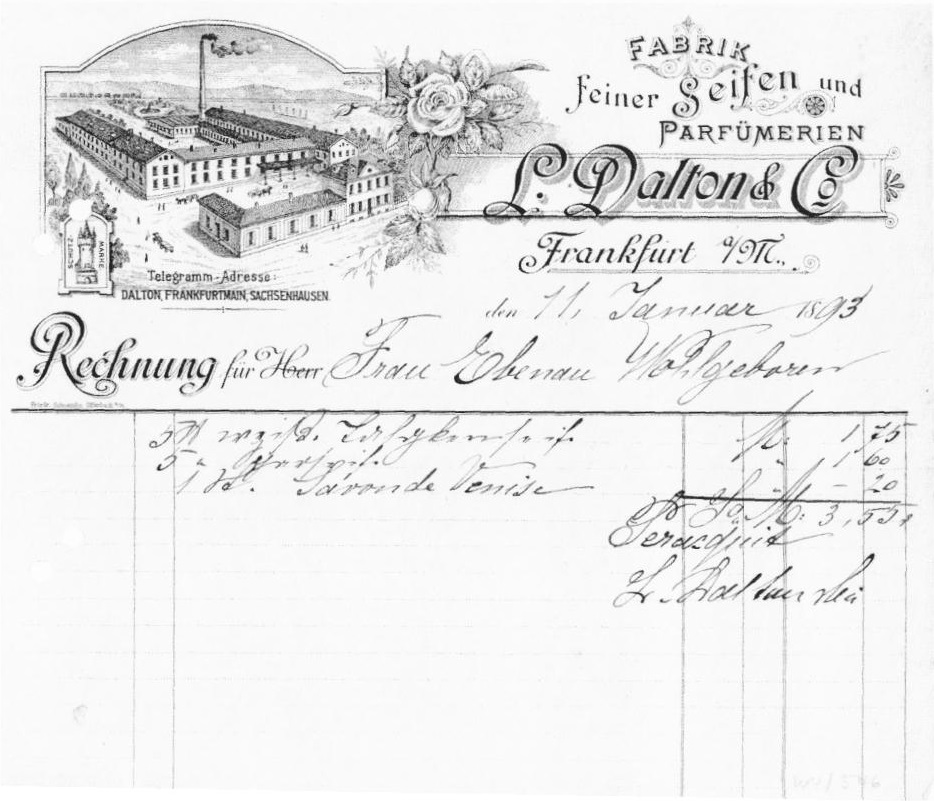 FABRIK
feiner Seifen und
PARFÜMERIEN
L. Dalton & Co
Frankfurt a/M.
SCHUTZ MARKE
Telegramm-Adresse:
DALTON, FRANKFURTMAIN, SACHSENHAUSEN.
den 11. Januar 1893
Rechnung für Herr Frau Ebenau Wohlgeboren
5 M. 1,75
5 " " 1 60
1 St. Savon de Venise " – 20
M: 3,55
L. Dalton